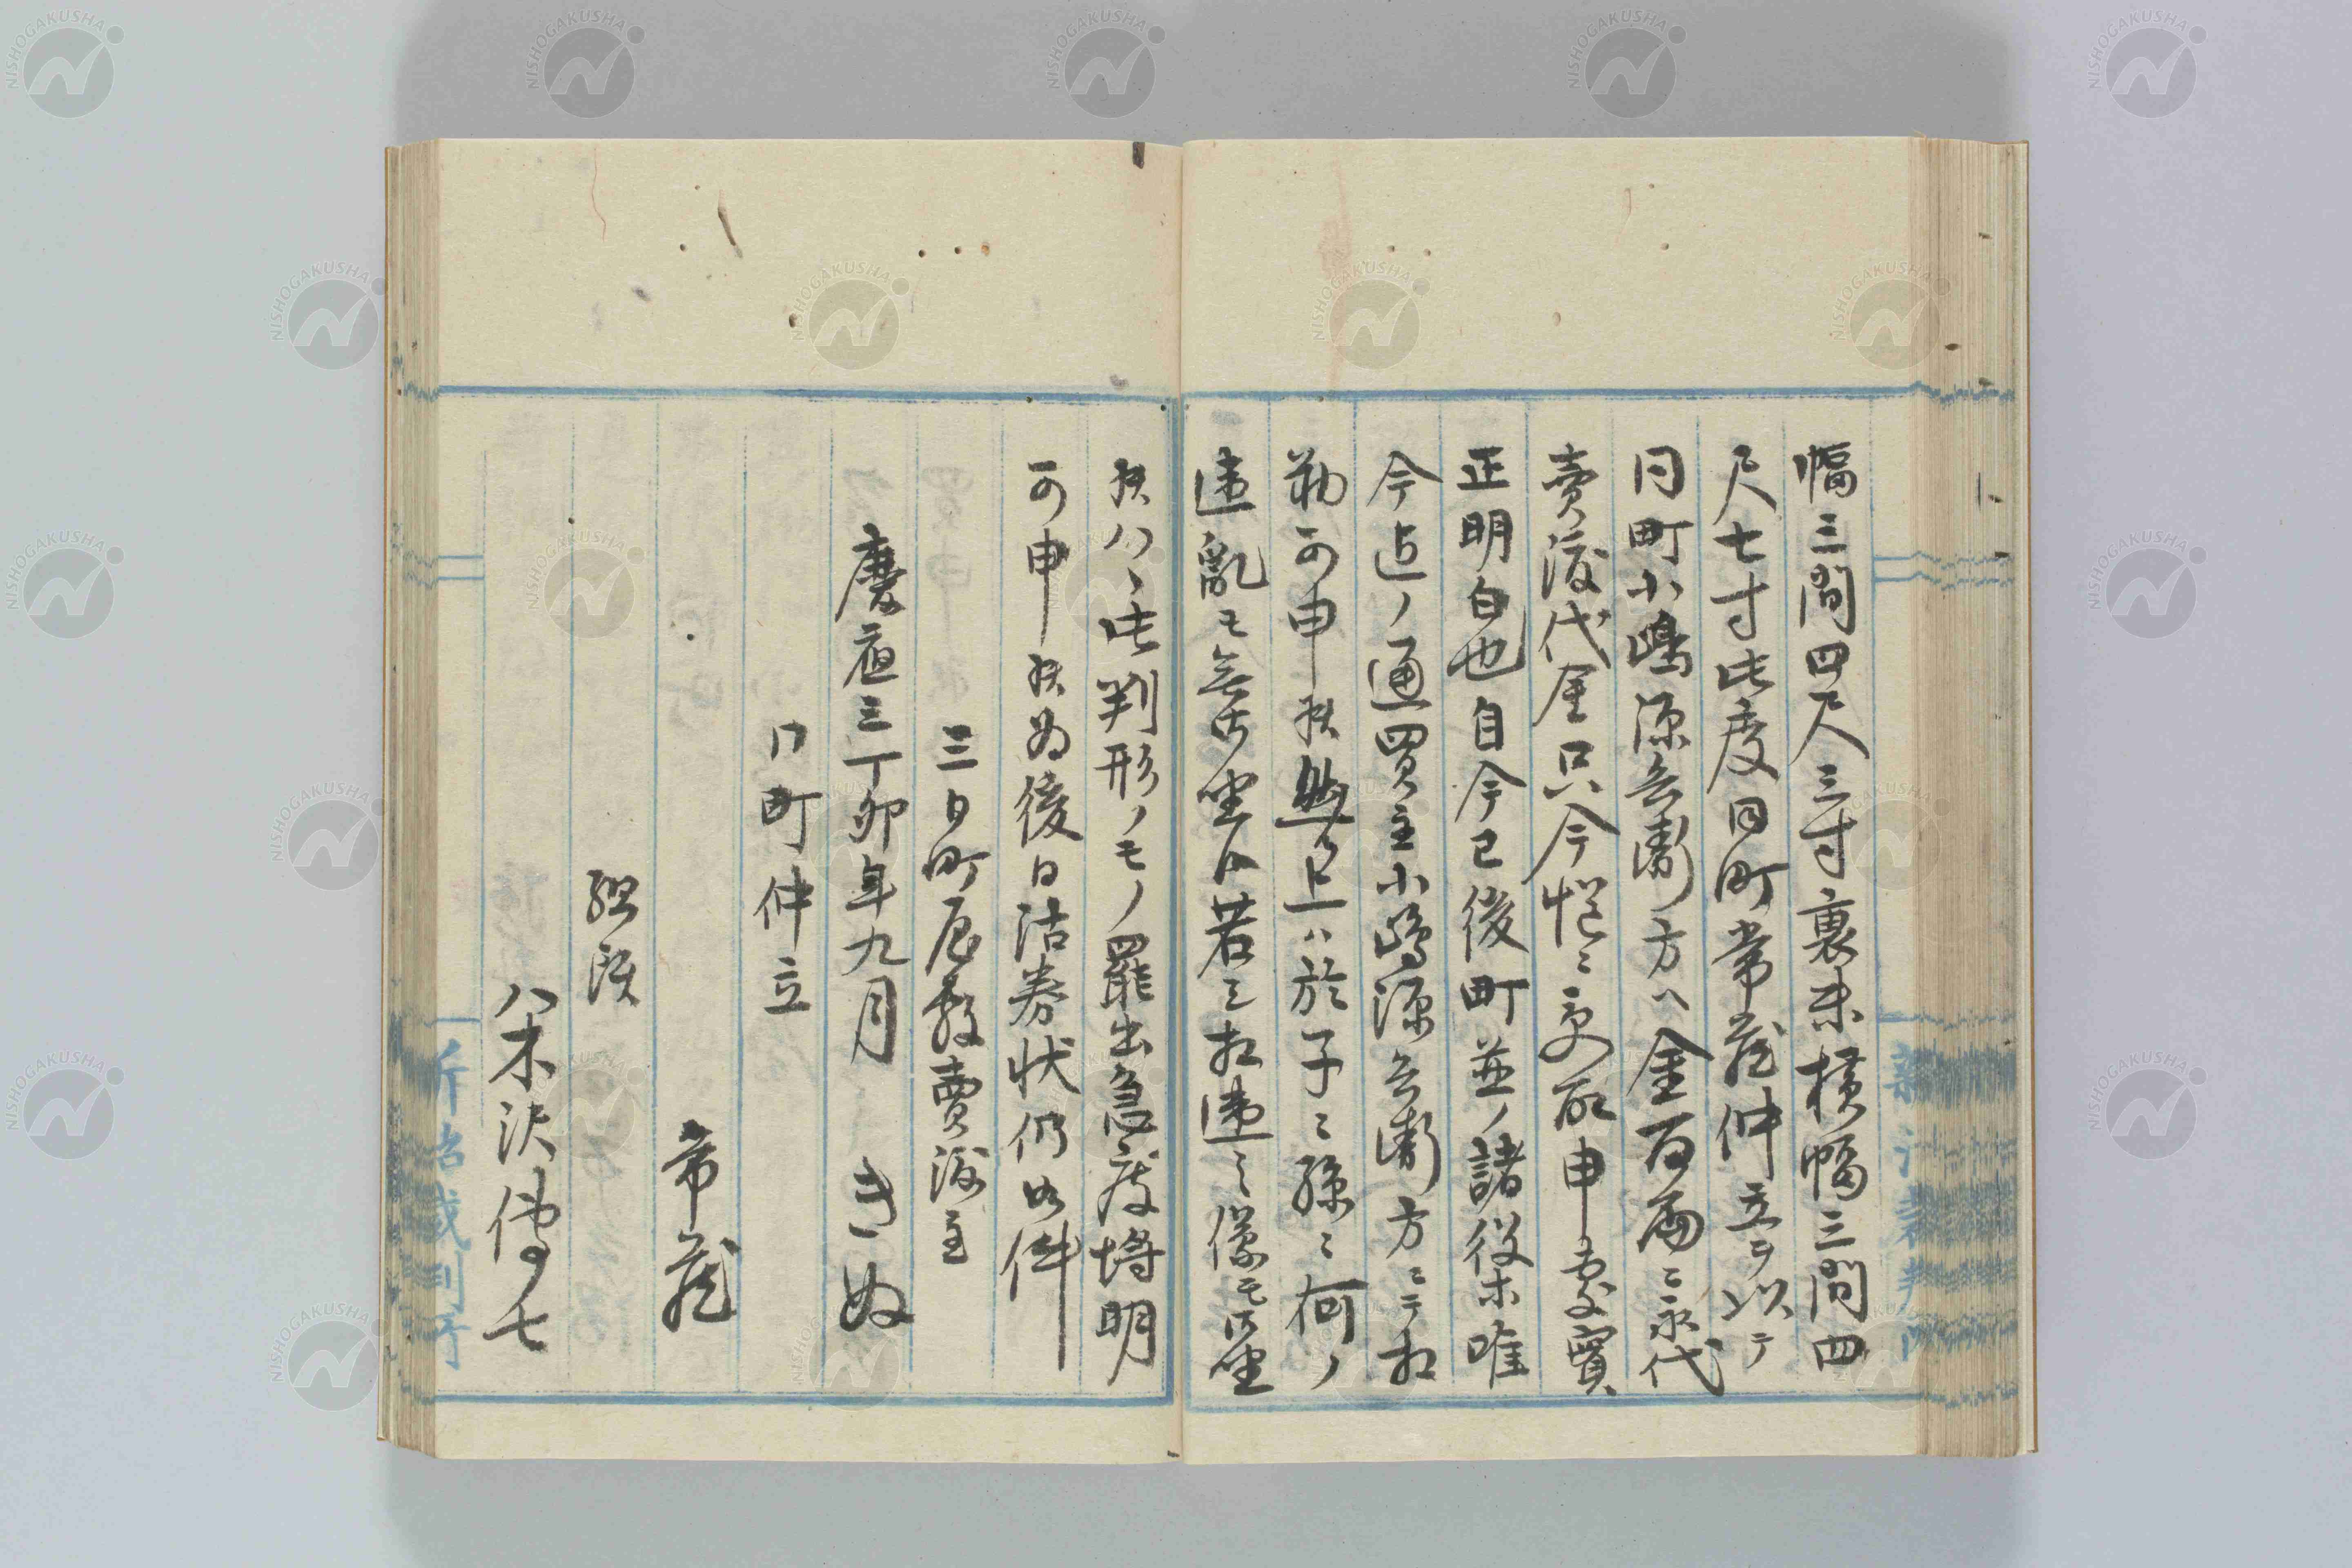 幅三間四尺三寸裏末横幅三間四
尺七寸此度同町常蔵仲立ヲ以テ
同町小嶋源兵衛方ヘ金百両ニ永代
賣渡代金只今慥ニ受取申處實
正明白也自今已後町並ノ諸役等唯
今迄ノ通買主小嶋源兵衛方ニテ相
勤可申候然ル上ハ於子ニ孫ニ何ノ
違亂モ無御坐候若シ相違之儀モ御坐
候ハヽ此判形ノモノ罷出急度埒明
可申候為後日沽券状仍如件
三日町屋敷賣渡主
慶應三丁卯年九月 きぬ
同町仲立
常蔵
組頭
八木沢傳七
NISHOGAKUSHA